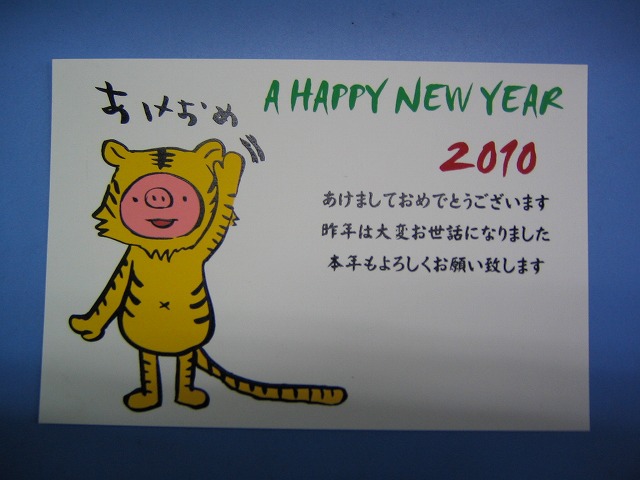 あけおめ
A HAPPY NEW YEAR
2010
あけましておめでとうございます
昨年は大変お世話になりました
本年もよろしくお願い致します